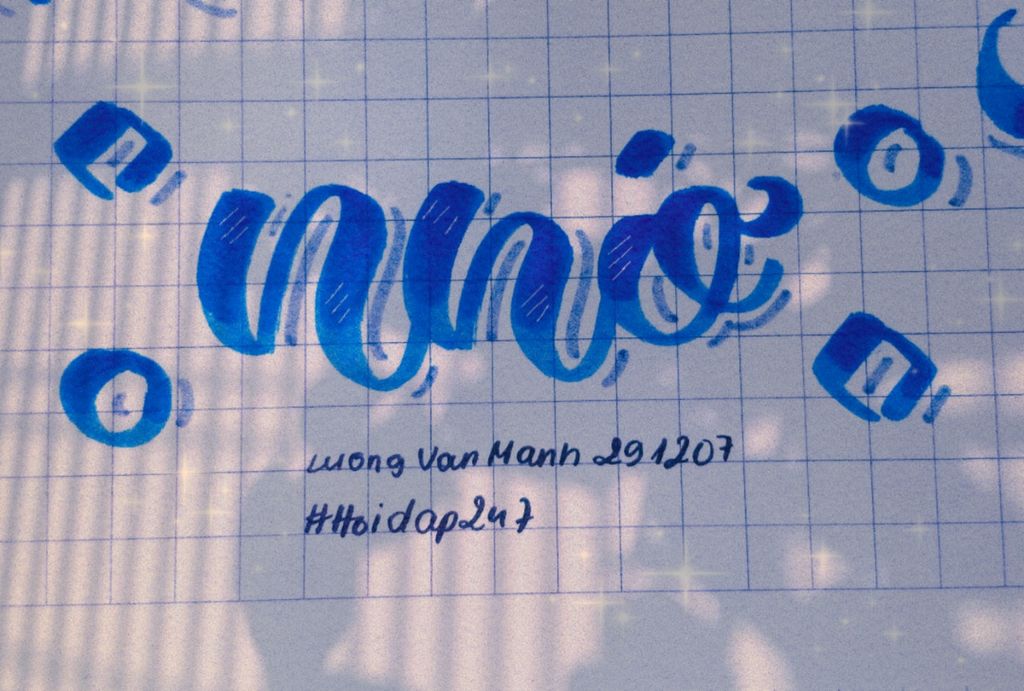 nnớ
luong Van Manh 291207
#Hoidap247